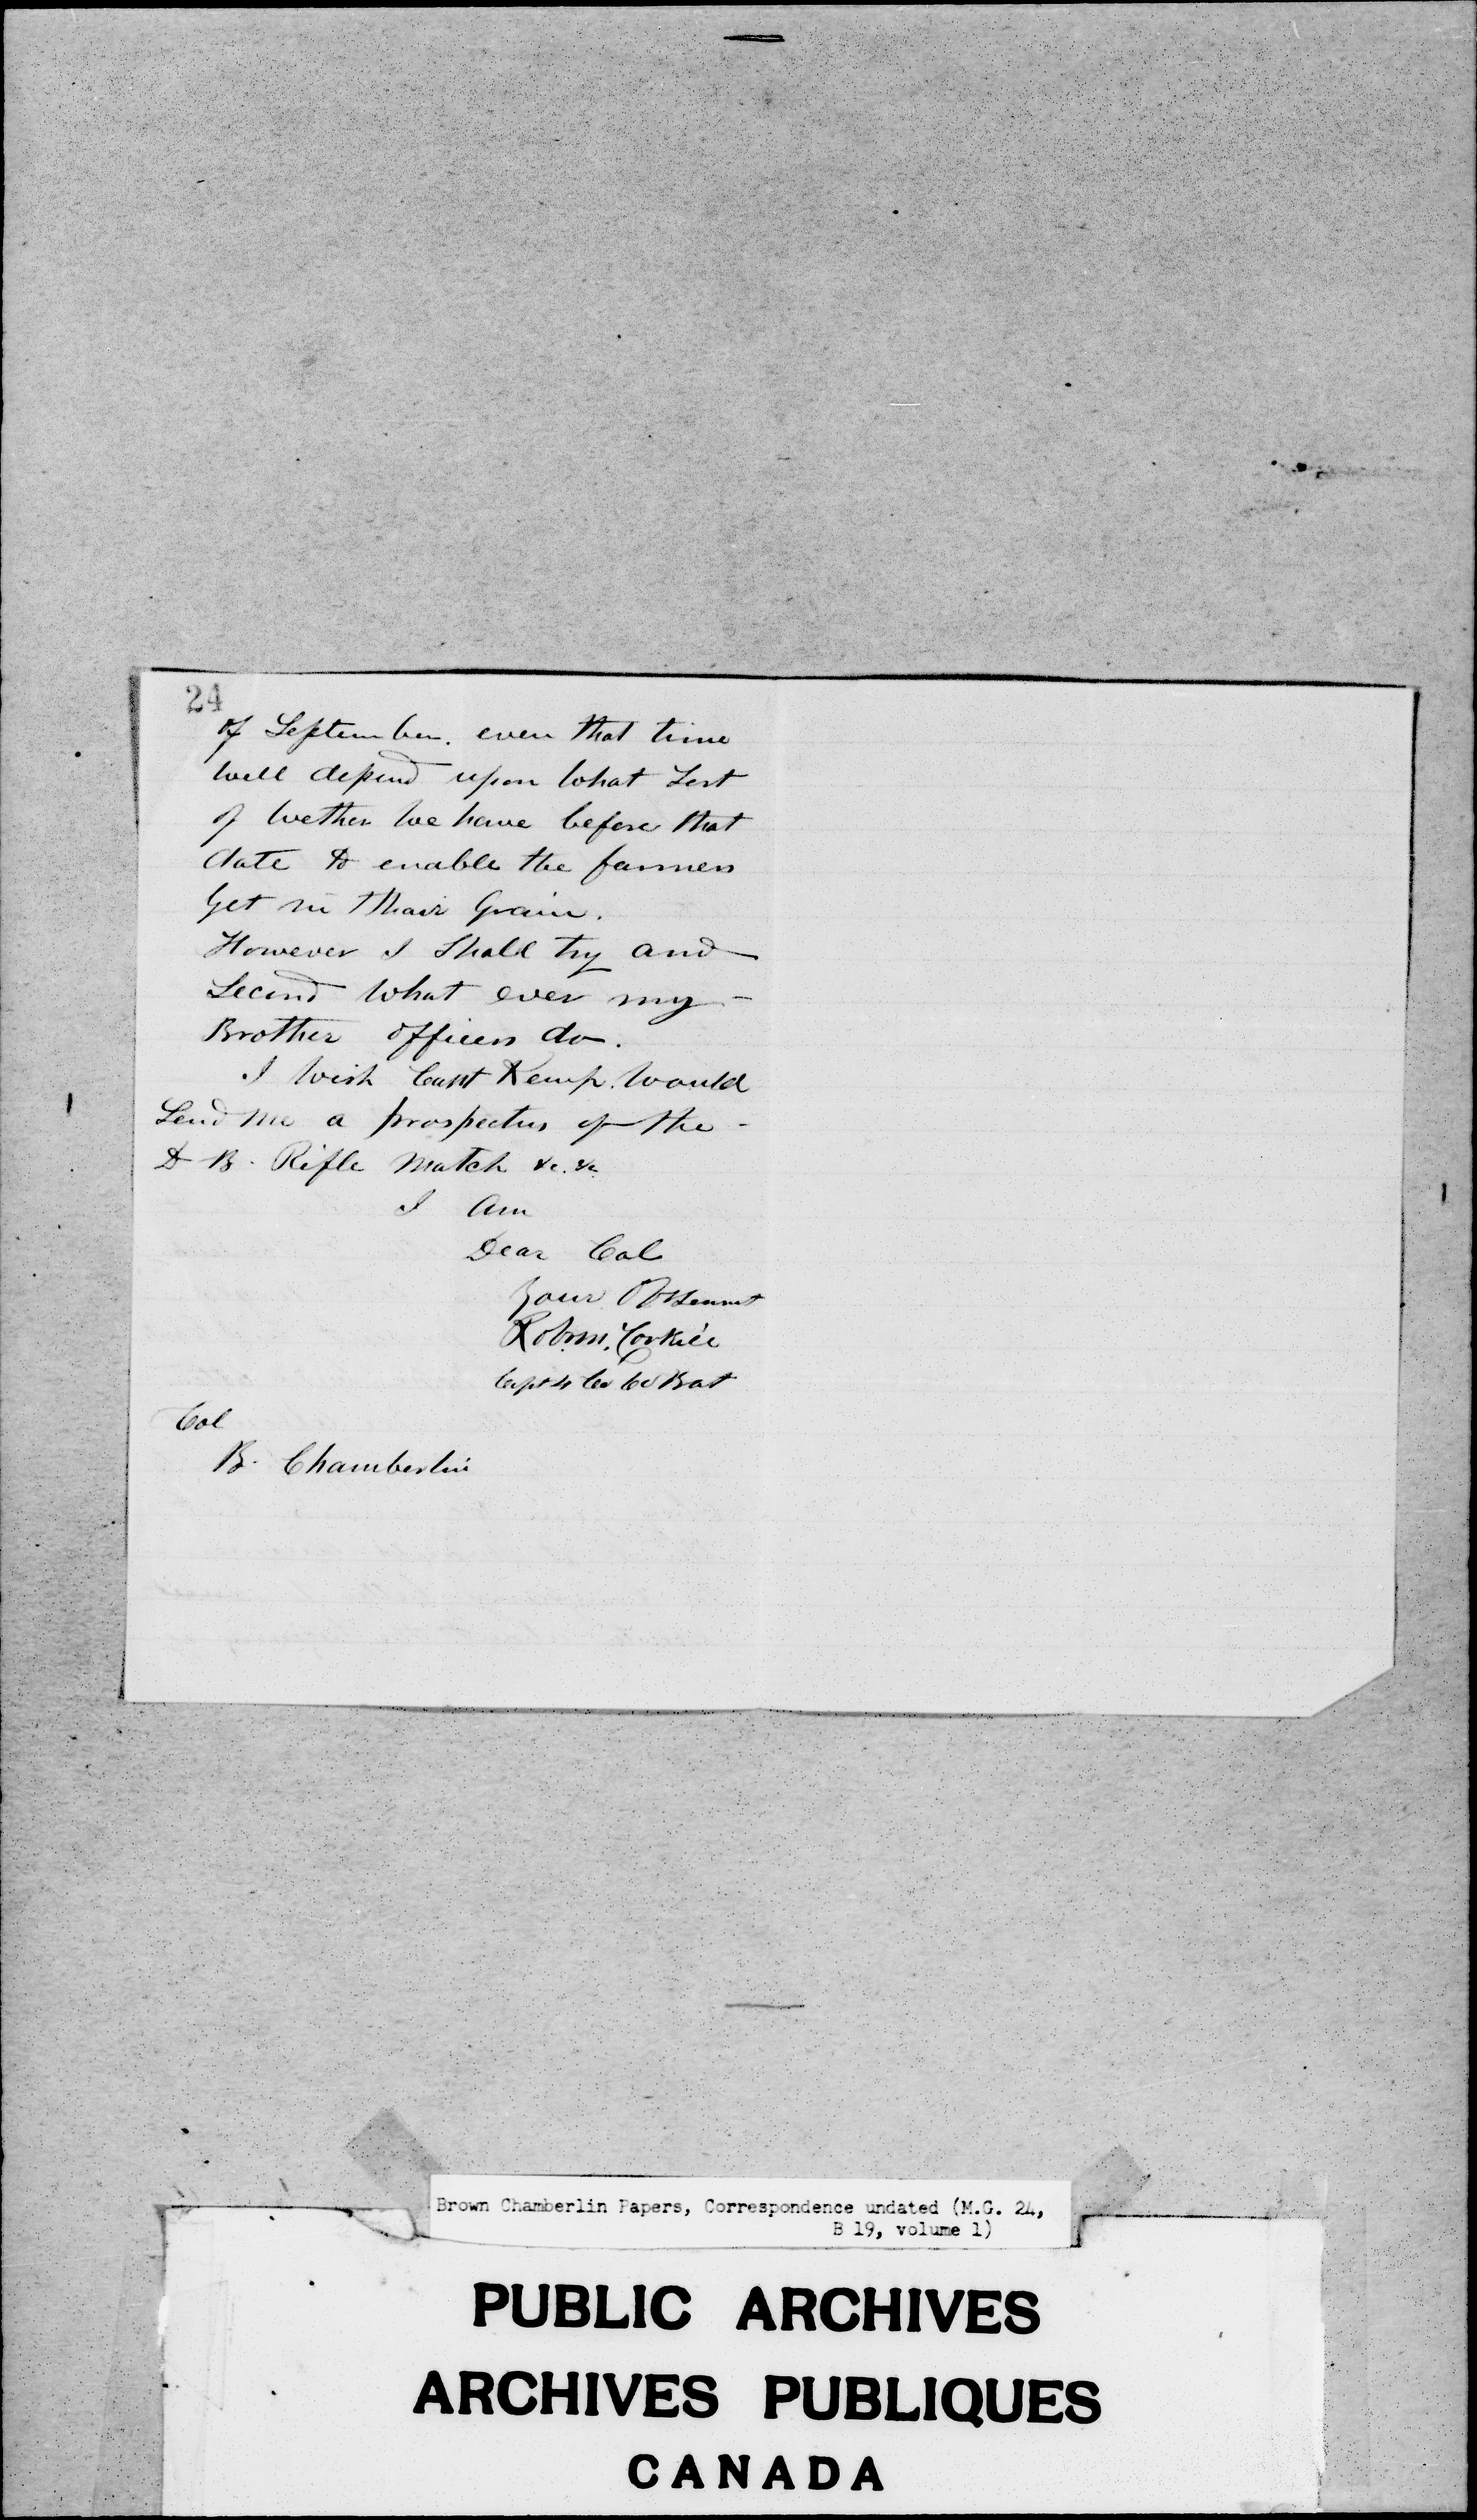 24
of September. even that time
will depend upon what Sort
of wether we have before that
date to enable the farmers
get in thair Grain.
However I Shall try and
Second what ever my -
Brother officers do.
I wish Capt Kemp. would
Send me a prospectus of the -
D B. Rifle Match &c. &c.
I Am
Dear Col
Your Obt Servnt
Rob. m. Corkill
Capt 4 Co 60 Bat
Col
B. Chamberlin
Brown Chamberlin Papers, Correspondence undated (M.G. 24,
B 19, volume 1)
PUBLIC ARCHIVES
ARCHIVES PUBLIQUES
CANADA